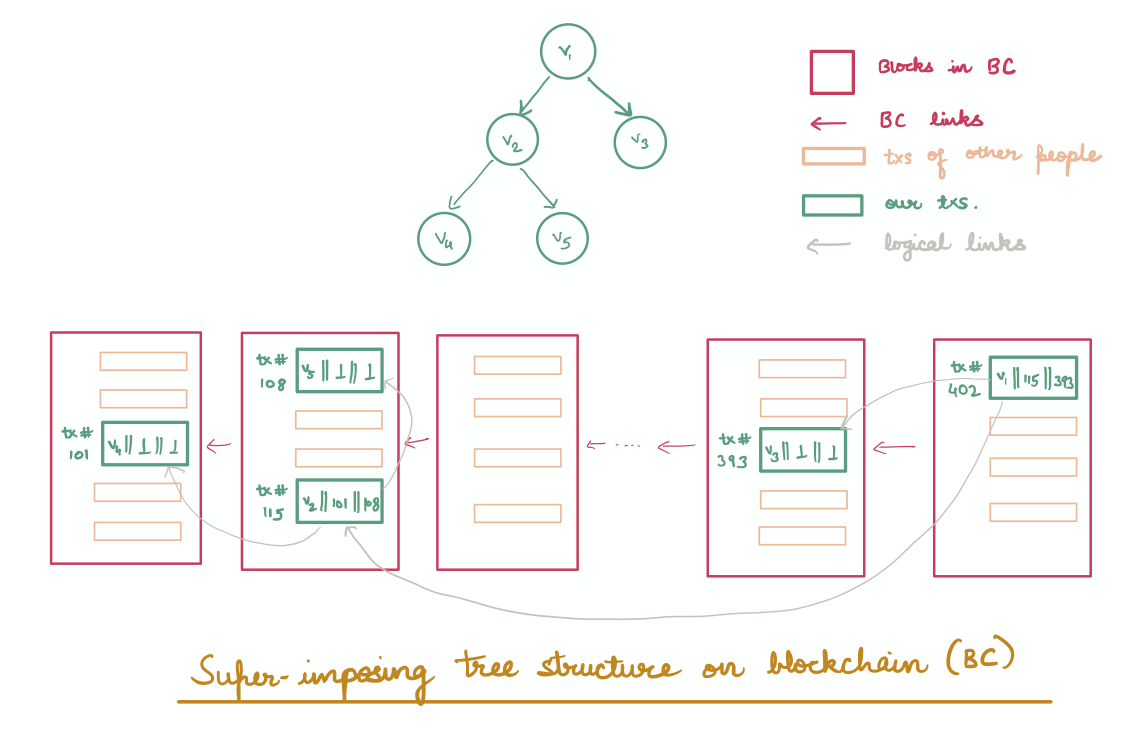 V₁
V₂
V₃
V₄
V₅
Blocks in BC
BC links
txs of other people
our txs.
logical links
tx#
101
V₄ || ⊥ || ⊥
tx#
108
V₅ || ⊥ || ⊥
tx#
115
V₂ || 101 || 108
....
tx#
393
V₃ || ⊥ || ⊥
tx#
402
V₁ || 115 || 393
Super-imposing tree structure on blockchain (BC)